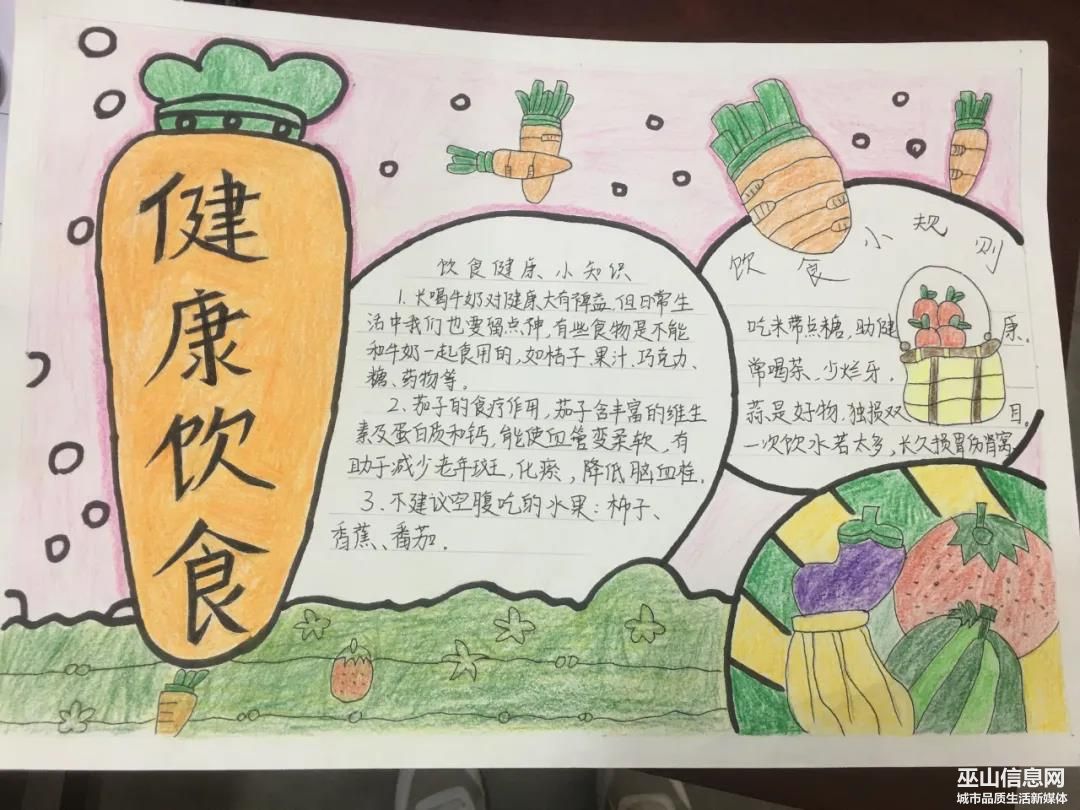 健康饮食
饮食健康小知识
1. 长喝牛奶对健康大有裨益,但日常生
活中我们也要留点神,有些食物是不能
和牛奶一起食用的,如桔子、果汁、巧克力、
糖、药物等。
2、茄子的食疗作用,茄子含丰富的维生
素及蛋白质和钙,能使血管变柔软,有
助于减少老年斑,化瘀,降低脑血栓。
3、不建议空腹吃的水果:柿子、
香蕉、番茄。
饮食小规则
吃米带点糖,助健康。
常喝茶、少烂牙。
蒜是好物,独损双目。
一次饮水若太多,长久损胃伤肾
巫山信息网
城市品质生活新媒体